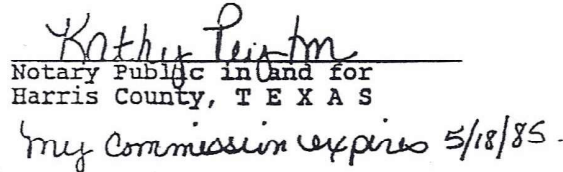 Kathy Peyton
Notary Public in and for
Harris County, T E X A S
My Commission expires 5/18/85.